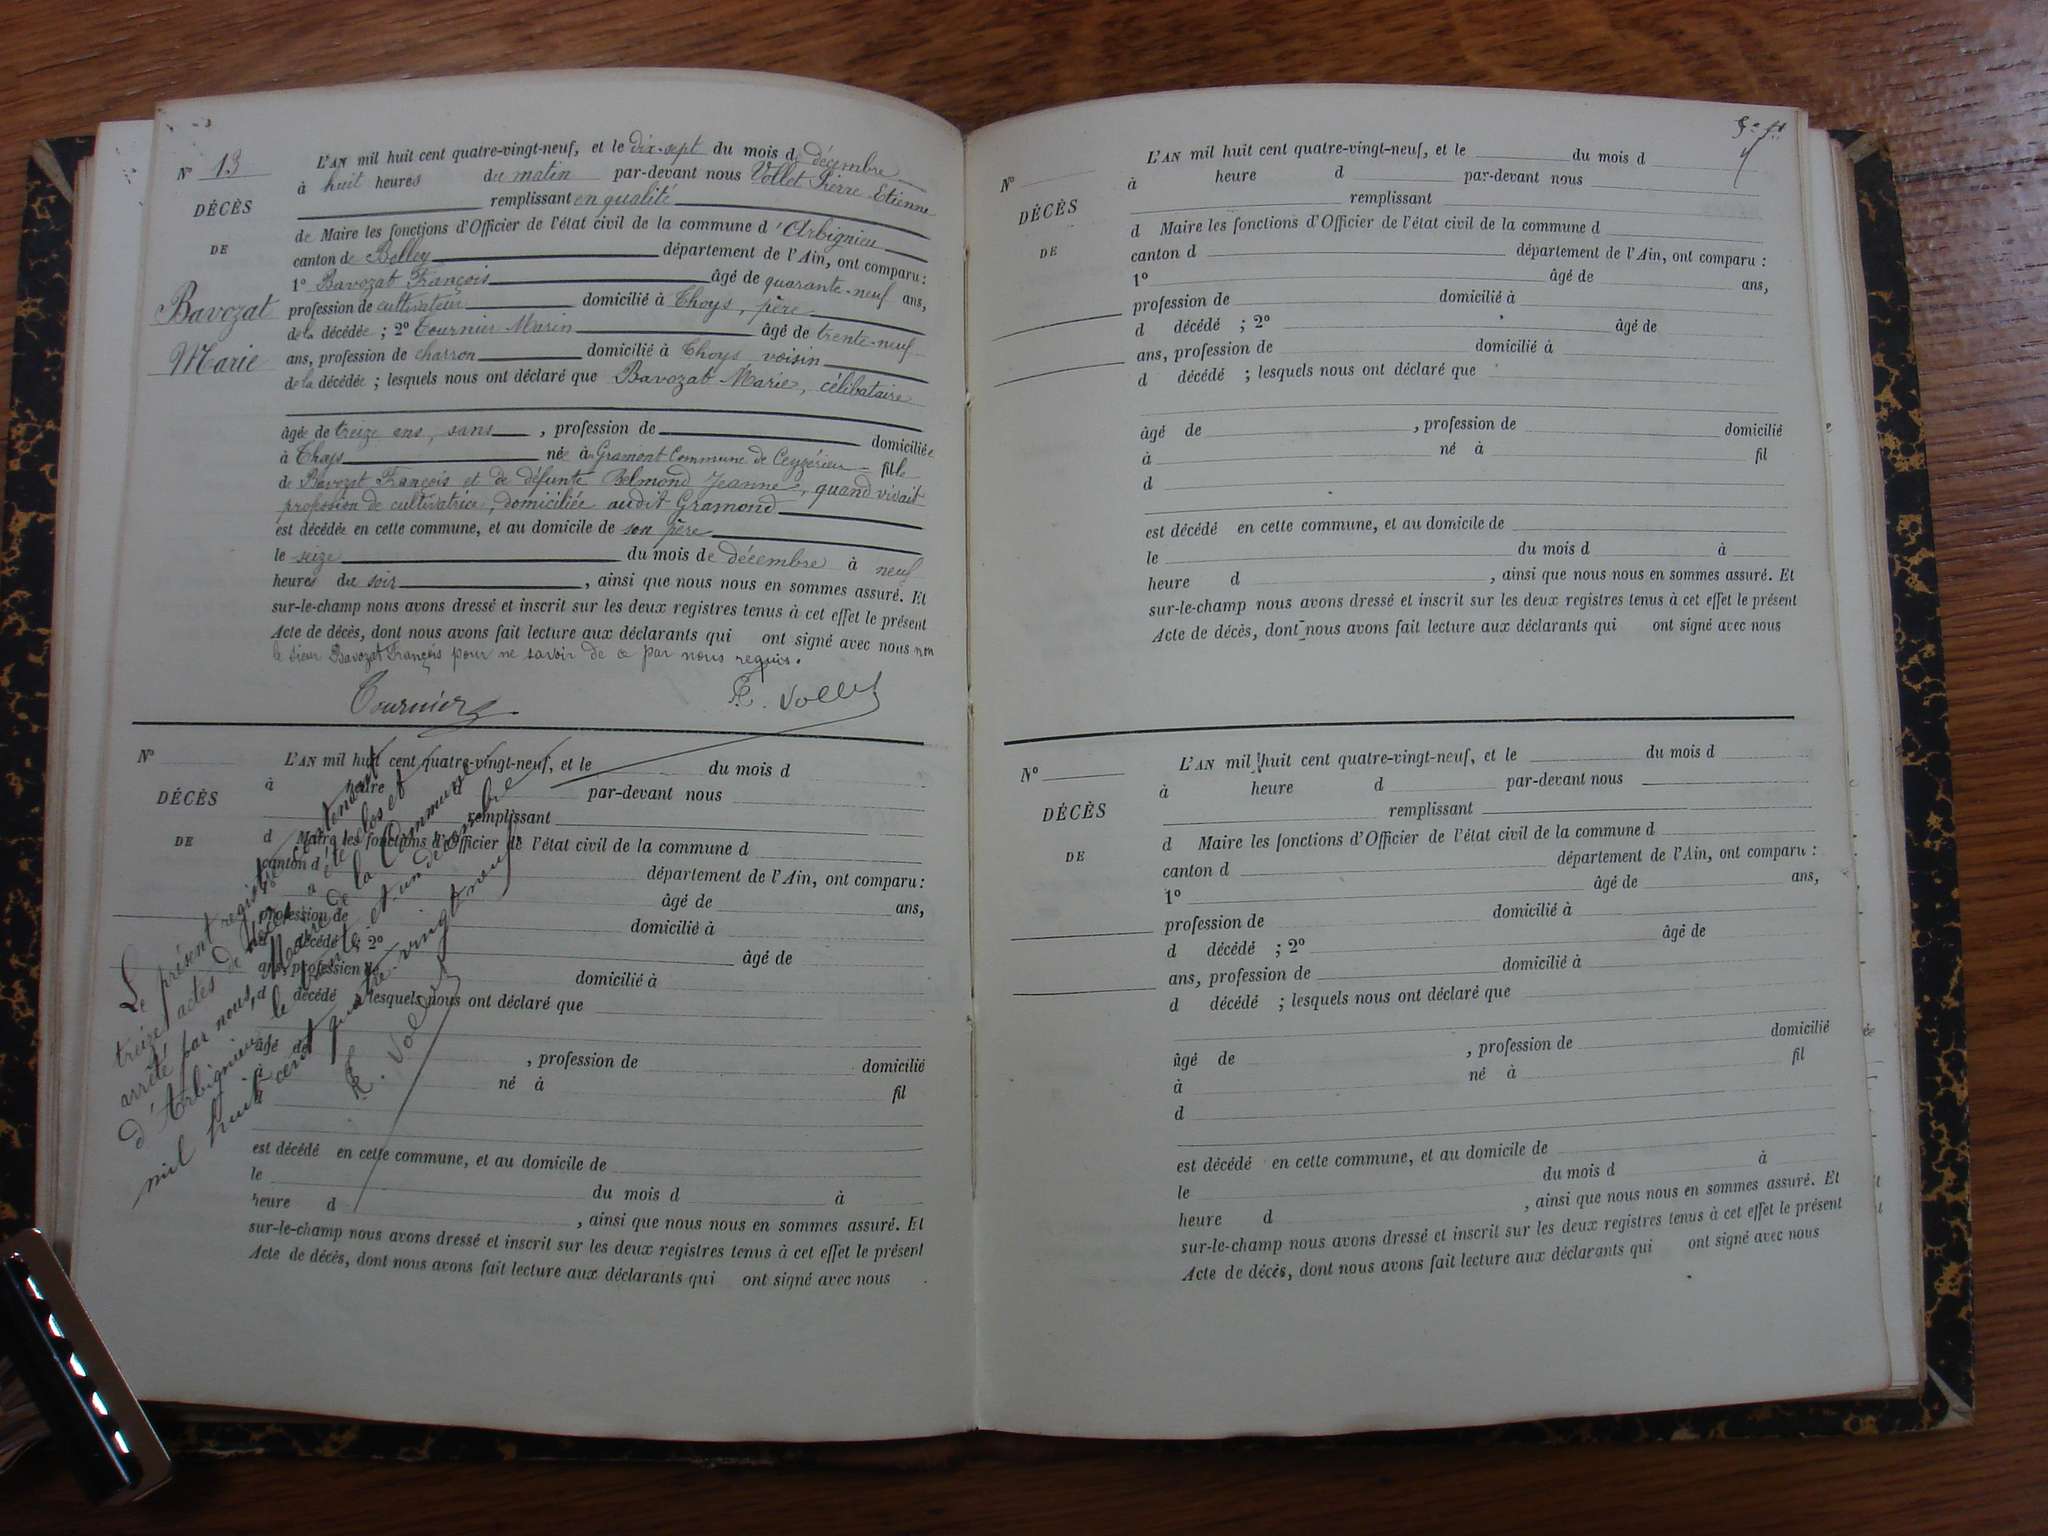 N° 13
DÉCÈS
DE
Bavozat
Marie
L'AN mil huit cent quatre-vingt-neuf, et le dix-sept du mois de décembre
à huit heures du matin par-devant nous Vollet Pierre Etienne
remplissant en qualité
de Maire les fonctions d'Officier de l'état civil de la commune d'Arbignieu
canton de Belley département de l'Ain, ont comparu :
1° Bavozat François âgé de quarante-neuf ans,
profession de cultivateur domicilié à Thoys, père
de la décédée ; 2° Tournier Marin âgé de trente-neuf
ans, profession de charron domicilié à Thoys voisin
de la décédée ; lesquels nous ont déclaré que Bavozat Marie, célibataire
âgée de treize ans, sans , profession de domiciliée
à Thoys née à Gramont Commune de Ceyzérieu fille
de Bavozat François et de défunte Belmond Jeanne, quand vivait
profession de cultivatrice, domiciliée audit Gramond
est décédée en cette commune, et au domicile de son père
le seize du mois de décembre à neuf
heures du soir , ainsi que nous nous en sommes assuré. Et
sur-le-champ nous avons dressé et inscrit sur les deux registres tenus à cet effet le présent
Acte de décès, dont nous avons fait lecture aux déclarants qui ont signé avec nous non
le sieur Bavozat François pour ne savoir de ce par nous requis.
Tournier P.E. Vollet
N°
DÉCÈS
DE
L'AN mil huit cent quatre-vingt-neuf, et le du mois d
à heure par-devant nous
remplissant
d Maire les fonctions d'Officier de l'état civil de la commune d
canton d département de l'Ain, ont comparu :
âgé de ans,
profession de domicilié à
décédé ; 2° âgé de
ans, profession de domicilié à
d décédé ; lesquels nous ont déclaré que
âgé de , profession de domicilié
à né à fil
d
est décédé en cette commune, et au domicile de
le du mois d à
heure d , ainsi que nous nous en sommes assuré. Et
sur-le-champ nous avons dressé et inscrit sur les deux registres tenus à cet effet le présent
Acte de décès, dont nous avons fait lecture aux déclarants qui ont signé avec nous
Le présent registre contenant
treize actes de décès a été clos et
arrêté par nous, Maire de la Commune
d'Arbignieu le trente-et-un décembre
mil huit cent quatre-vingt neuf
P.E. Vollet
N°
DÉCÈS
DE
L'AN mil huit cent quatre-vingt-neuf, et le du mois d
à heure d par-devant nous
remplissant
d Maire les fonctions d'Officier de l'état civil de la commune d
canton d département de l'Ain, ont comparu :
1° âgé de ans,
profession de domicilié à
d décédé ; 2° âgé de
ans, profession de domicilié à
d décédé ; lesquels nous ont déclaré que
âgé de , profession de domicilié
à né à fil
d
est décédé en cette commune, et au domicile de
le du mois d à
heure d , ainsi que nous nous en sommes assuré. Et
sur-le-champ nous avons dressé et inscrit sur les deux registres tenus à cet effet le présent
Acte de décès, dont nous avons fait lecture aux déclarants qui ont signé avec nous
N°
DÉCÈS
DE
L'AN mil huit cent quatre-vingt-neuf, et le du mois d
à heure d par-devant nous
remplissant
d Maire les fonctions d'Officier de l'état civil de la commune d
canton d département de l'Ain, ont comparu :
1° âgé de ans,
profession de domicilié à
d décédé ; 2° âgé de
ans, profession de domicilié à
d décédé ; lesquels nous ont déclaré que
âgé de , profession de domicilié
à né à fil
d
est décédé en cette commune, et au domicile de
le du mois d à
heure d , ainsi que nous nous en sommes assuré. Et
sur-le-champ nous avons dressé et inscrit sur les deux registres tenus à cet effet le présent
Acte de décès, dont nous avons fait lecture aux déclarants qui ont signé avec nous